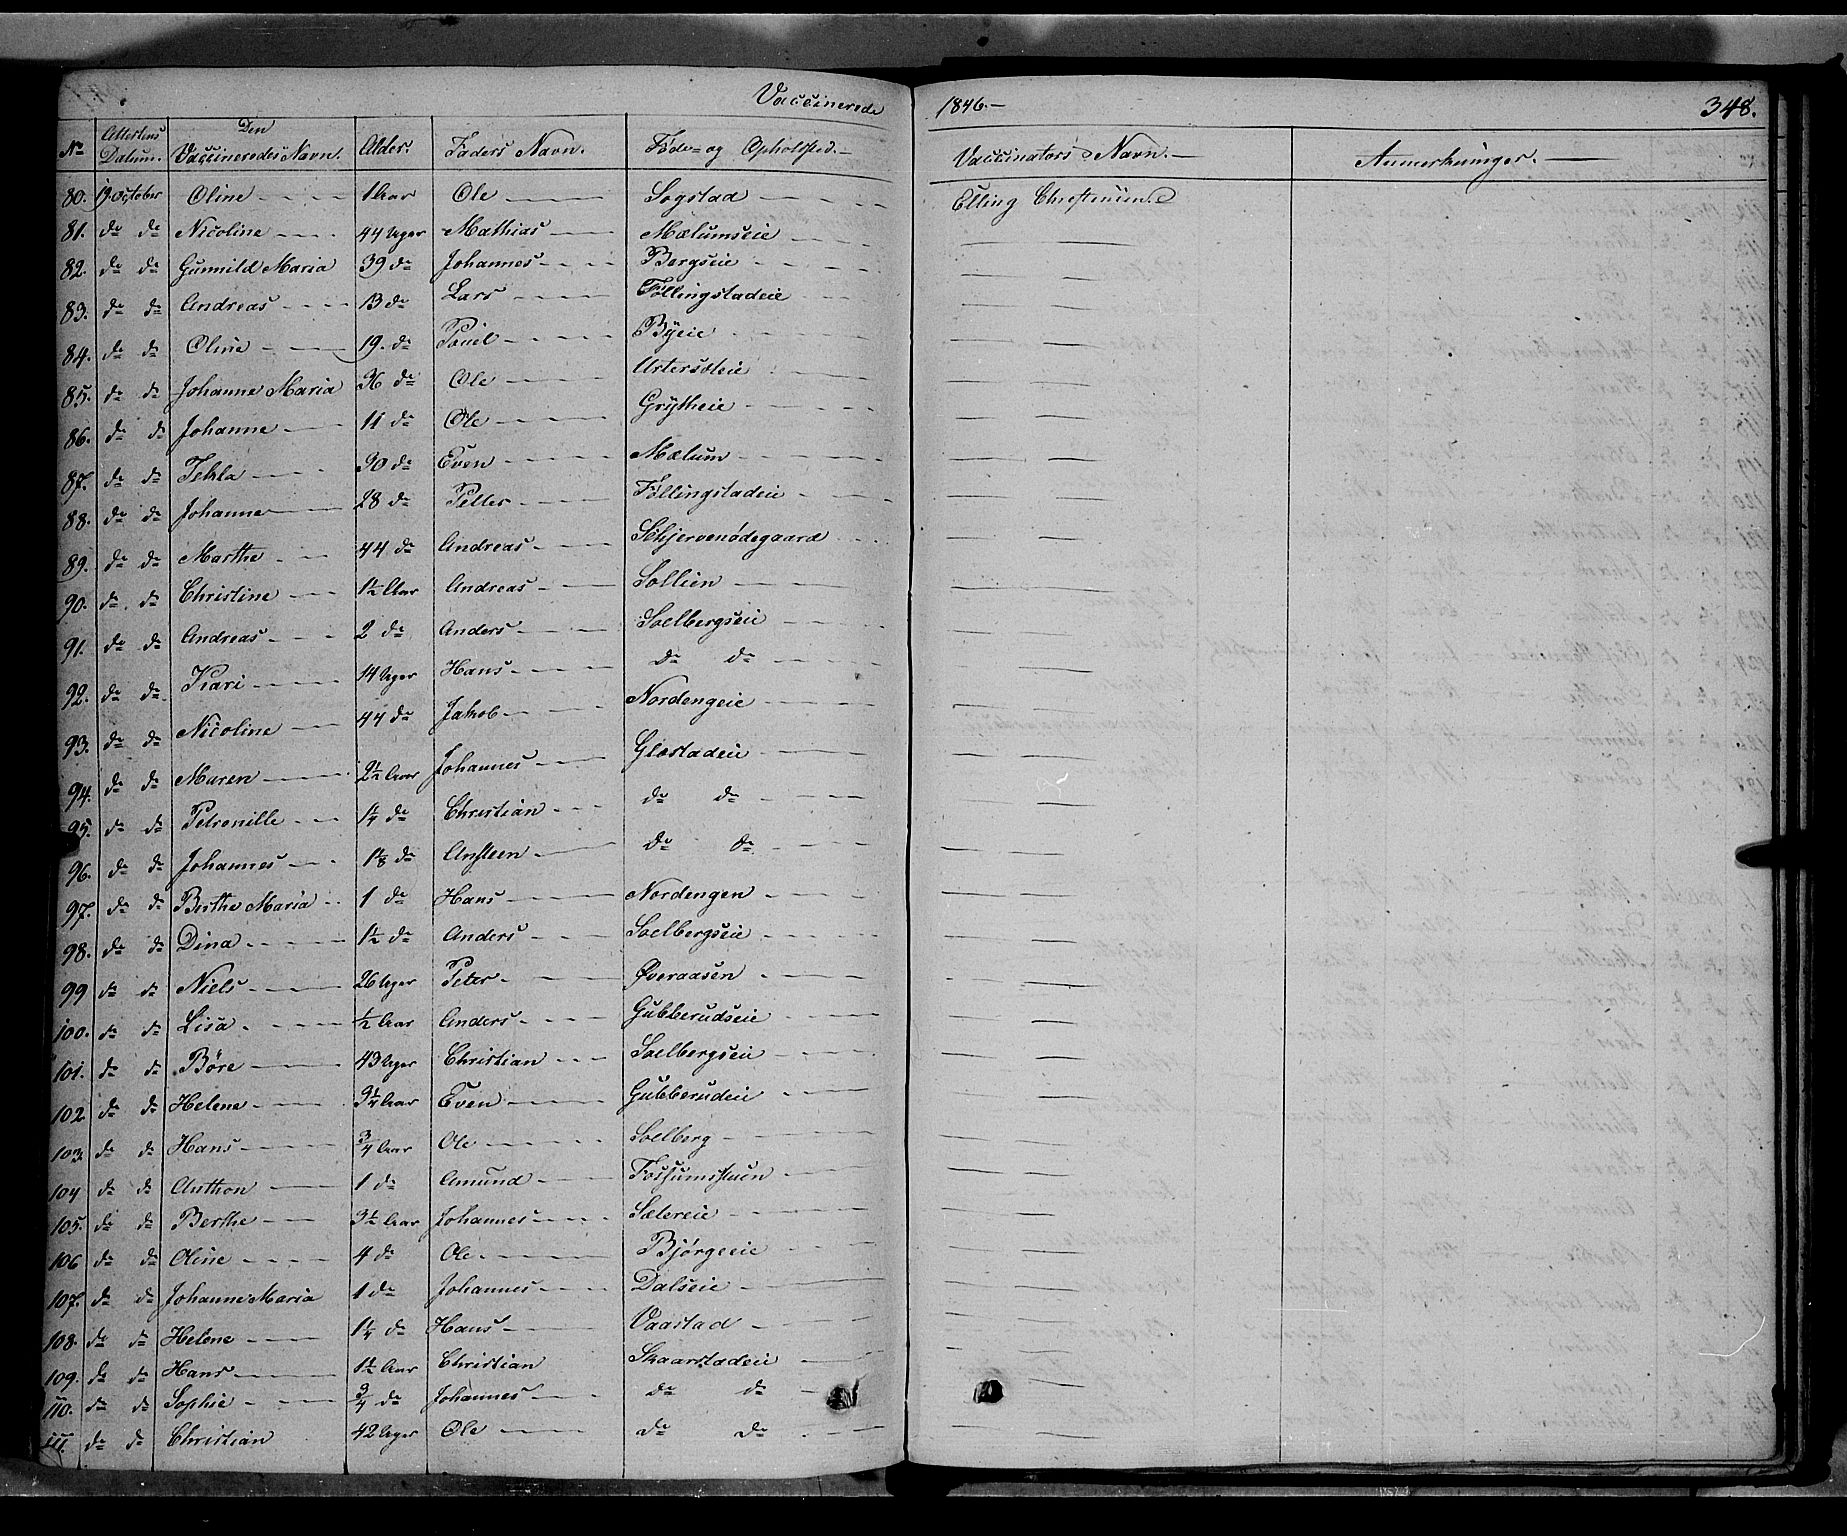 Vaccinerede 1846.— 348.
No Attestens Datum. Den Vaccineredes Navn. Alder. Faders Navn. Føde- og Opholdsted. Vaccinators Navn. Anmerkninger.
80. 19 October Oline 1 Aar Ole Sogstad Elling Christensen
81. do do Nicoline 44 Uger Mathias Mælumseie
82. do do Gunnild Maria 39 do Johannes Bergseie
83. do do Andreas 13 do Lars Føllingstadeie
84. do do Oline 19. do Povel Byeie
85. do do Johanne Maria 36 do Ole
86. do do Johanne 11 do Ole Grytheie
87. do do Tekla 30 do Even Mælum
88. do do Johanne 28 do Petter Føllingstadeie
89. do do Marthe 44 do Andreas Schjervenødegaard
90. do do Christine 1½ Aar Andreas Sollien
91. do do Andreas 2 do Anders Soelbergseie
92. do do Kari 14 Uger Hans do do
93. do do Nicoline 44 do Jakob Nordengeie
94. do do Maren 2½ Aar Johannes Gløstadeie
95. do do Petronille 1¼ do Christian do do
96. do do Johannes 1⅛ do Ansteen do do
97. do do Berthe Maria 1 do Hans Nordengen
98. do do Dina 1½ do Anders Soelbergseie
99 do do Niels 26 Uger Peter Øveraasen
100. do do Lisa ½ Aar Anders Gubberudseie
101. do do Børe 43 Uger Christian Soelbergseie
102 do do Helene 3¼ Aar Even Gubberudeie
103. do do Hans ¾ Aar Ole Soelberg
104 do do Anthon 1 do Amund Fossumstuen
105. do do Berthe 3½ Aar Johannes Sætereie
106 do do Oline 4 do Ole Bjørgeeie
107. do do Johanne Maria 1 do Johannes Dalseie
108. do do Helene 1¼ do Hans Vaastad
109. do do Hans 1½ Aar Christian Skaarstadeie
110. do do Sophie ¾ do Johannes do do
111. do do Christian 42 Uger Ole do do